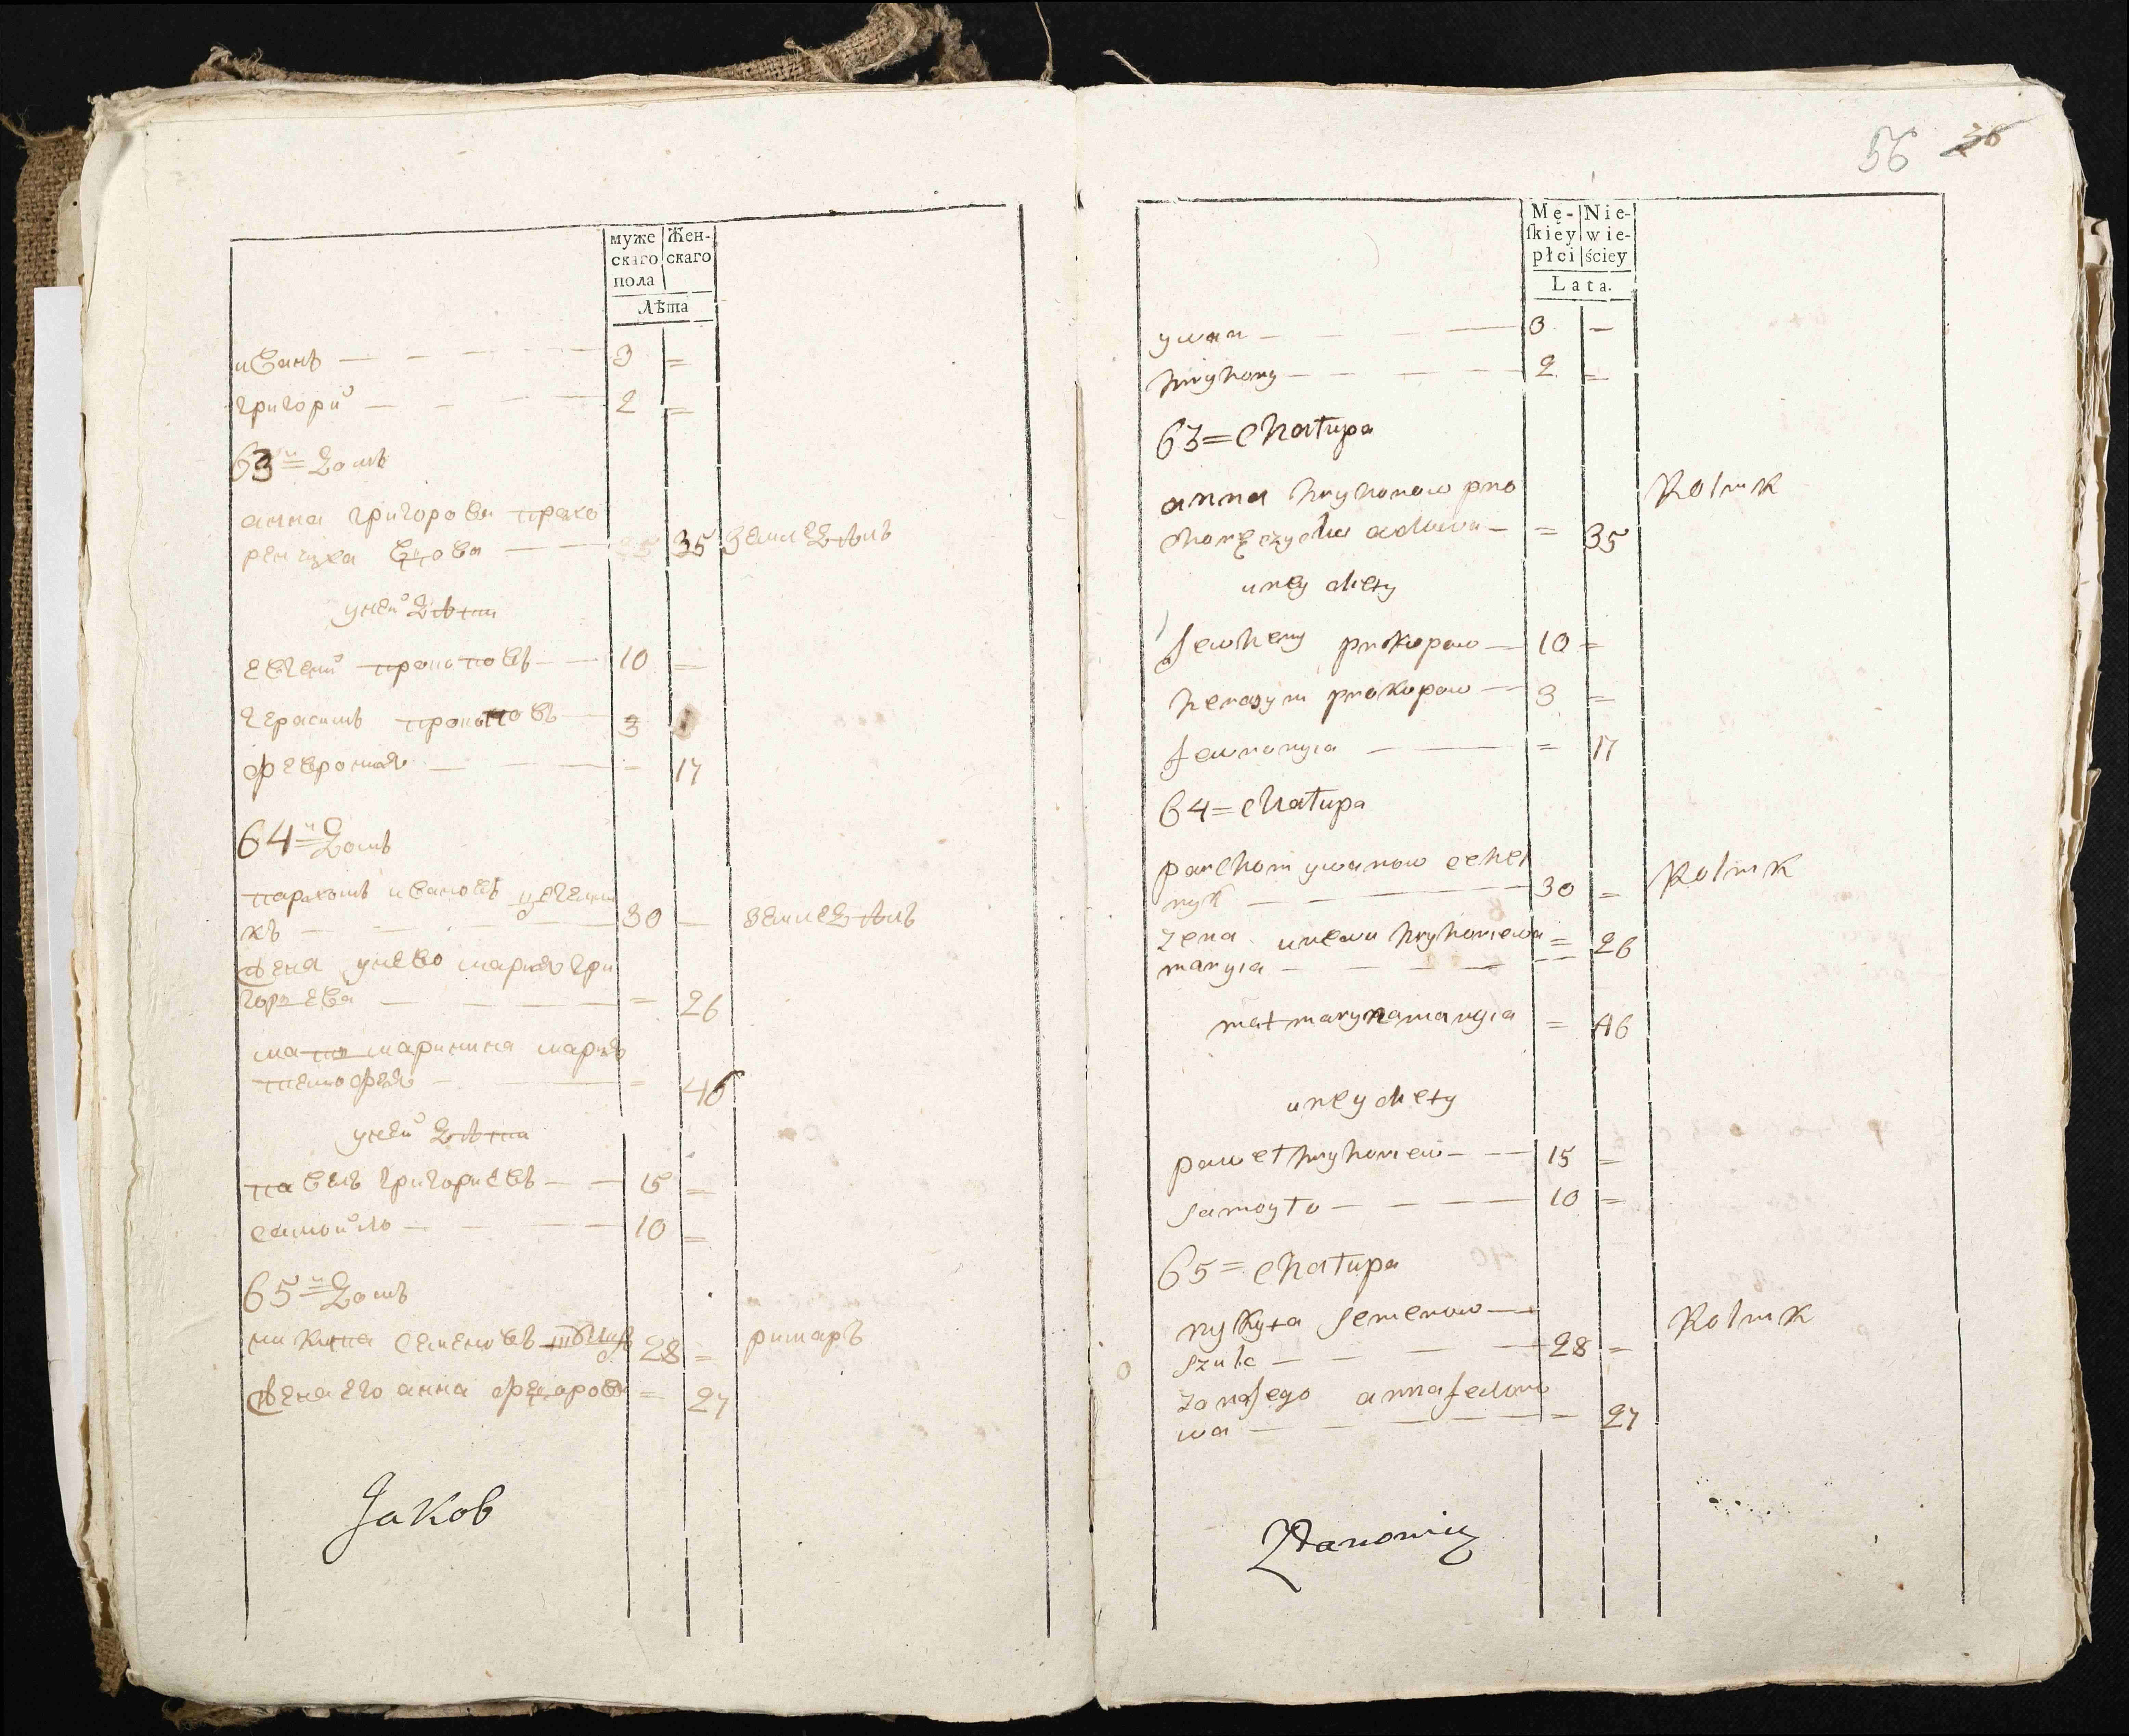 муже
скаго
пола
Жен-
скаго
Лѣта
иванъ — — — — 3 =
григорий — — — — 2 =
63й= домъ
анна григорова прохо
ренчуха вдова — — 35 земледѣлъ
уней дѣти
евгений прокоповъ — — 10 =
герасимъ прокоповъ — 3
феврония — — — = 17
64й= домъ
пархомъ ивановъ цегелни
къ — — — — 30 — земледѣлъ
жена унево мария гри
горьева — — — = 26
мать маринина мария
тимофея — — = 46
уней дѣти
павелъ григориевъ — — 15 =
самойло — — — 10 =
65й= домъ
никита семеновъ 28 = римаръ
жена его анна федорова = 27
Jakob
56 36
Mę-
ſkiey
płci
Nie-
wie-
ściey
Lata.
ywan — — — — 3 —
hryhory — — — — 2 =
63= chałupa
anna hryhorow pro Rolnik
choręczycha wdowa — = 35
uney diety
Jewheny prokopow — 10 =
herasym prokopow — 3 =
fewronyia — — = 17
64= chałupa
parchom ywanow cehel Rolnik
nyk — — — 30 =
zena unewu hryhoriewa = 26
maryia — — — — =
mat maryna maryia = 46
uney diety
paweł hryhoriew — — 15 =
samoyło — — — 10 =
65= chałupa
nykyta Semenow — Rolnik
szulc — — — — 28 =
zona Jego anna fedoro
wa — — — — — = 27
Zdanowicz